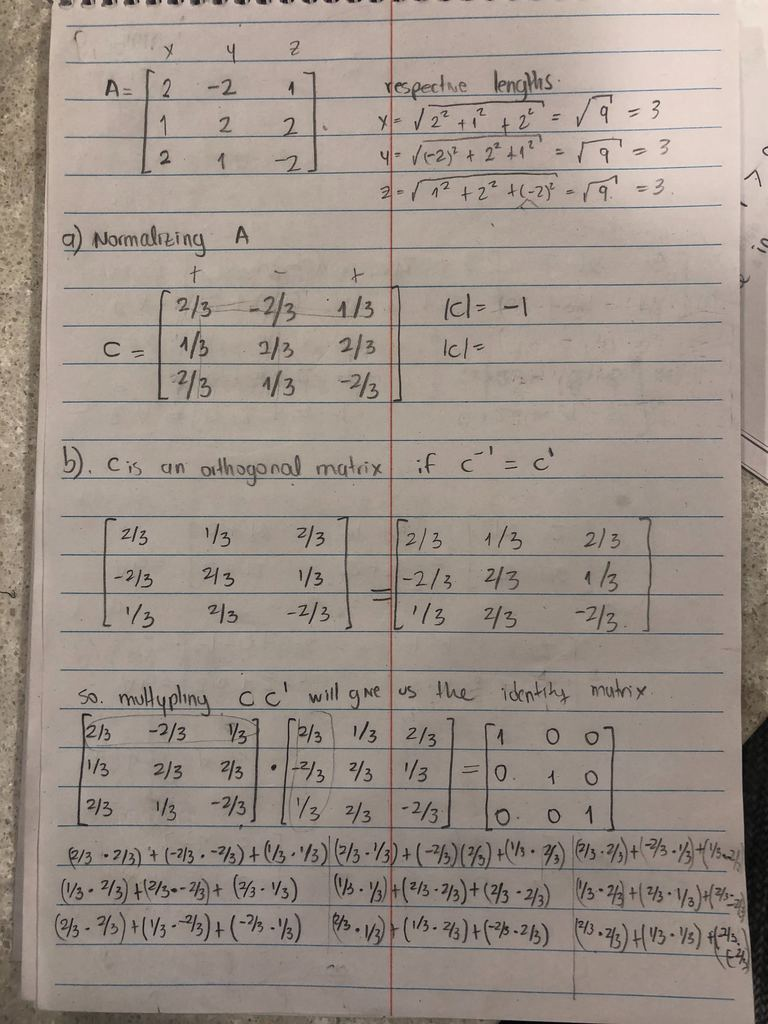 x y z
A = [ 2 -2 1
1 2 2
2 1 -2 ].
respective lengths.
x = √(2² + 1² + 2²) = √9 = 3
y = √((-2)² + 2² + 1²) = √9 = 3
z = √(1² + 2² + (-2)²) = √9 = 3.
a) Normalizing A
+ - +
C = [ 2/3 -2/3 1/3
1/3 2/3 2/3
2/3 1/3 -2/3 ]
|C| = -1
|C| =
b). C is an orthogonal matrix if C⁻¹ = C'
[ 2/3 1/3 2/3
-2/3 2/3 1/3
1/3 2/3 -2/3 ]
= [ 2/3 1/3 2/3
-2/3 2/3 1/3
1/3 2/3 -2/3. ]
so. multypling C C' will give us the identity matrix.
[ 2/3 -2/3 1/3
1/3 2/3 2/3
2/3 1/3 -2/3 ]
• [ 2/3 1/3 2/3
-2/3 2/3 1/3
1/3 2/3 -2/3 ]
= [ 1 0 0
0. 1 0
0. 0 1 ]
(2/3 • 2/3) + (-2/3 • -2/3) + (1/3 • 1/3) | (2/3 • 1/3) + (-2/3)(2/3) + (1/3 • 2/3) | (2/3 • 2/3) + (-2/3 • 1/3) + (1/3 • -2/3)
(1/3 • 2/3) + (2/3 • -2/3) + (2/3 • 1/3) (1/3 • 1/3) + (2/3 • 2/3) + (2/3 • 2/3) (1/3 • 2/3) + (2/3 • 1/3) + (2/3 • -2/3)
(2/3 • 2/3) + (1/3 • -2/3) + (-2/3 • 1/3) (2/3 • 1/3) + (1/3 • 2/3) + (-2/3 • 2/3) (2/3 • 2/3) + (1/3 • 1/3) + (-2/3 • (-2/3)